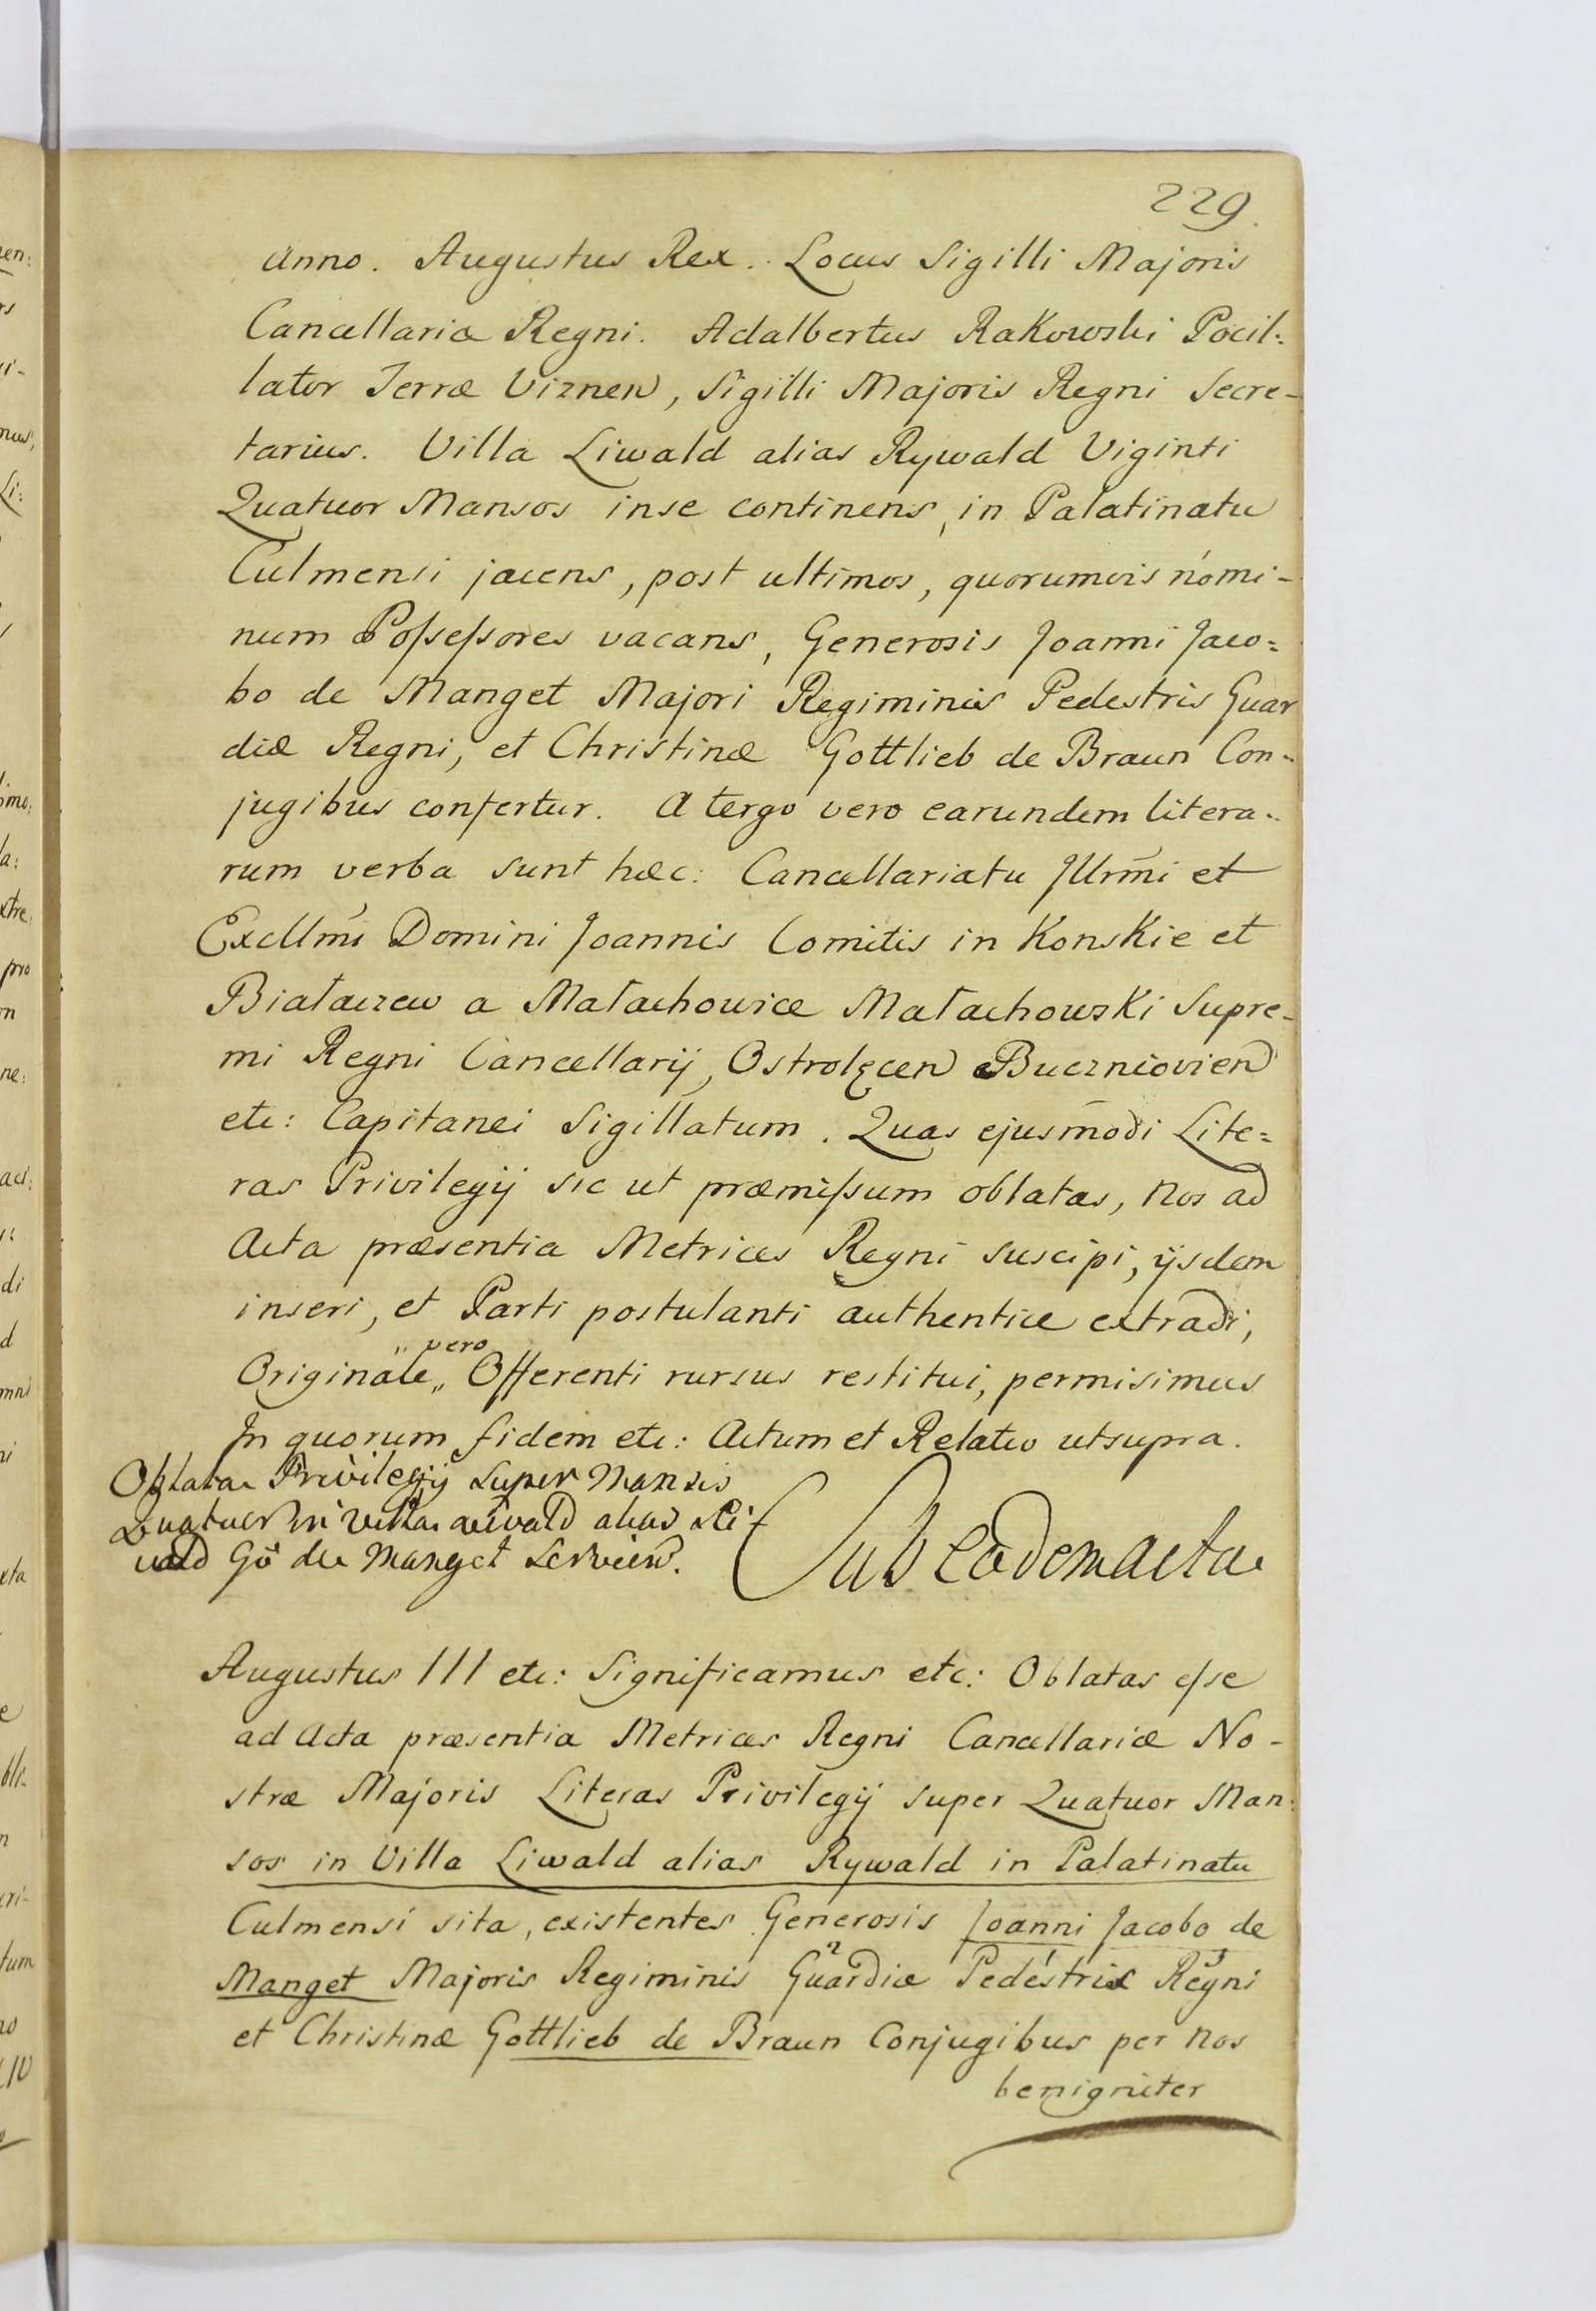 229.
Anno. Augustus Rex. Locus Sigilli Majoris
Cancellariæ Regni. Adalbertus Rakowski Pocil:
lator Terræ Viznen, Sigilli Majoris Regni Secre-
tarius. Villa Liwald alias Rywald Viginti
Quatuor Mansos inse continens, in Palatinatu
Culmensi jacens, post ultimos, quorumvis nomi-
num Possessores vacans, Generosis Joanni Jaco=
bo de Manget Majori Regiminis Pedestris Guar
diæ Regni, et Christinæ Gottlieb de Braun Con-
jugibus confertur. A tergo vero earundem litera-
rum verba sunt hæc: Cancellariatu Illrmi et
Excllmi Domini Joannis Comitis in Konskie et
Białaczew a Małachowice Małachowski Supre-
mi Regni Cancellarij, Ostrolęcen Buczniovien
etc: Capitanei Sigillatum. Quas ejusmodi Lite=
ras Privilegij sic ut præmissum oblatas, Nos ad
Acta præsentia Metrices Regni suscipi, ijsdem
inseri, et Parti postulanti authentice extradi,
Originale „vero„ Offerenti rursus restitui, permisimus
In quorum fidem etc: Actum et Relatio utsupra.
Oblata Privilegij super Mansis
Quatuor in villa Liwald alias Ri
wald Gō de Manget Servien.
Sub eadem acta
Augustus III etc: Significamus etc: Oblatas esse
ad Acta præsentia Metrices Regni Cancellariæ No-
stræ Majoris Literas Privilegij super Quatuor Man:
sos in Villa Liwald alias Rywald in Palatinatu
Culmensi sita, existentes Generosis Joanni Jacobo de
Manget Majoris Regiminis Guardiæ Pedestris Regni
et Christinæ Gottlieb de Braun Conjugibus per Nos
benigniter